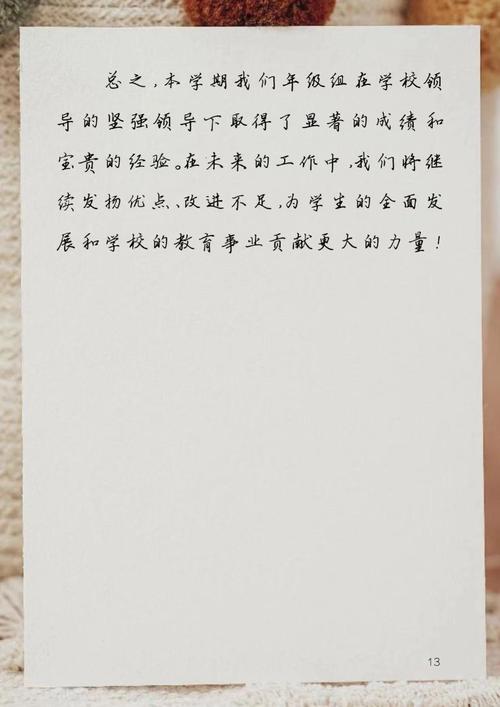 总之,本学期我们年级组在学校领
导的坚强领导下取得了显著的成绩和
宝贵的经验。在未来的工作中,我们将继
续发扬优点、改进不足,为学生的全面发
展和学校的教育事业贡献更大的力量!
13